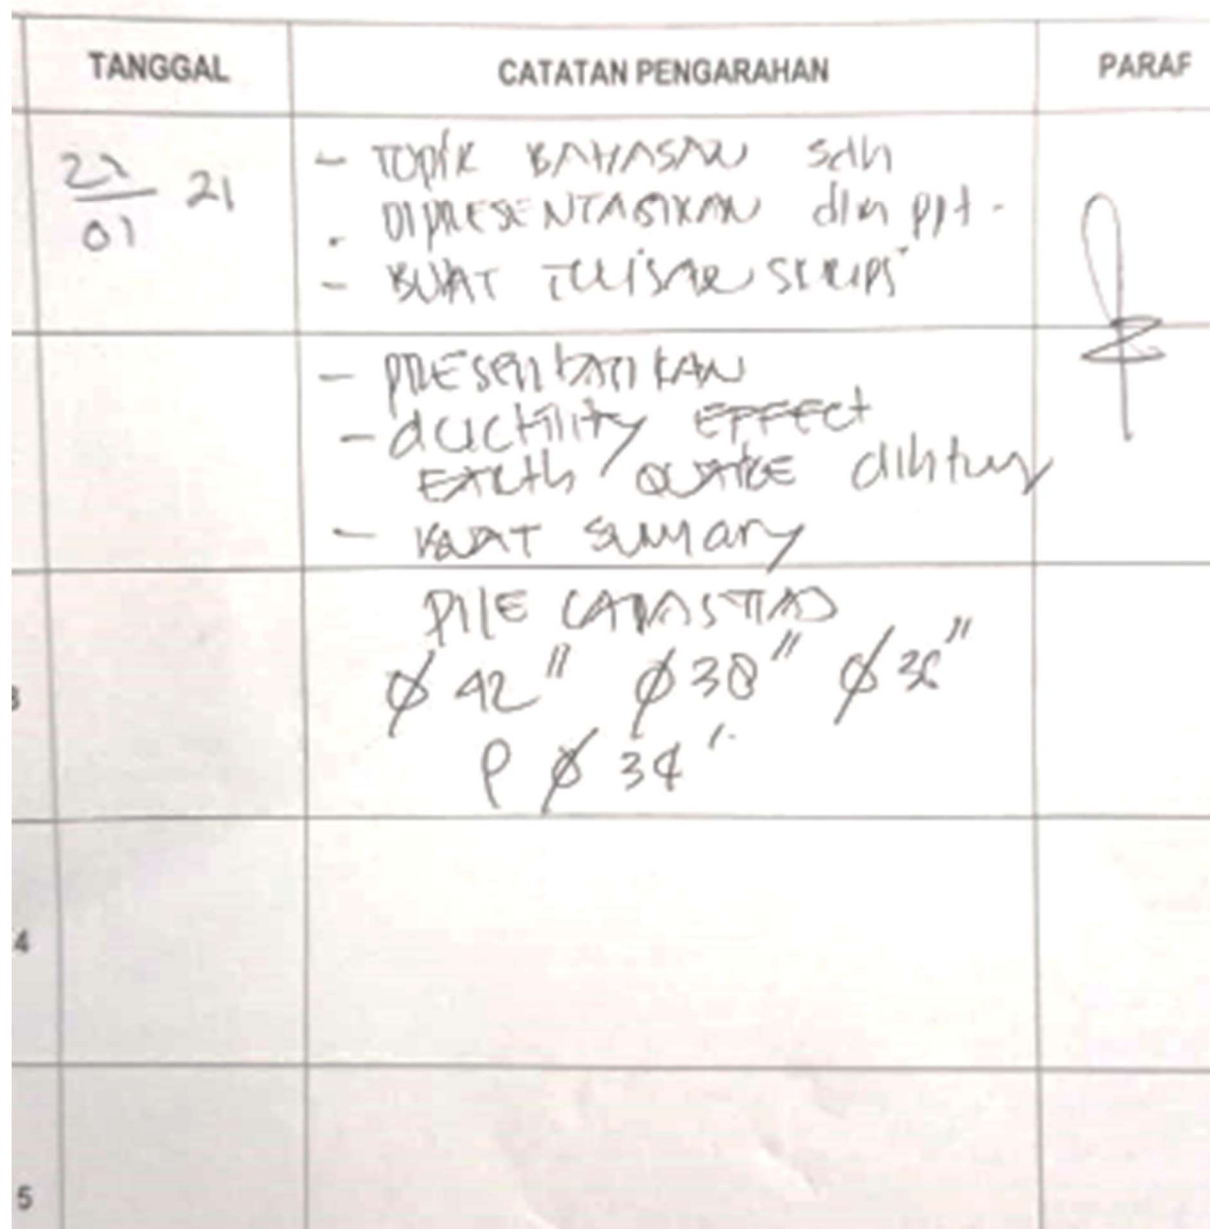 TANGGAL CATATAN PENGARAHAN PARAF
22/01 21
- TOPIK BAHASAN sdh
- DIPRESENTASIKAN dlm ppt.
- BUAT TULISAN SKRIPSI
- PRESENTATIKAN
- ductility EFFECT
EARTH QUAKE dihitung
- BUAT SUMMARY
PILE CAPASITAS
ø 42" ø 30" ø 36"
P ø 34"
4
5